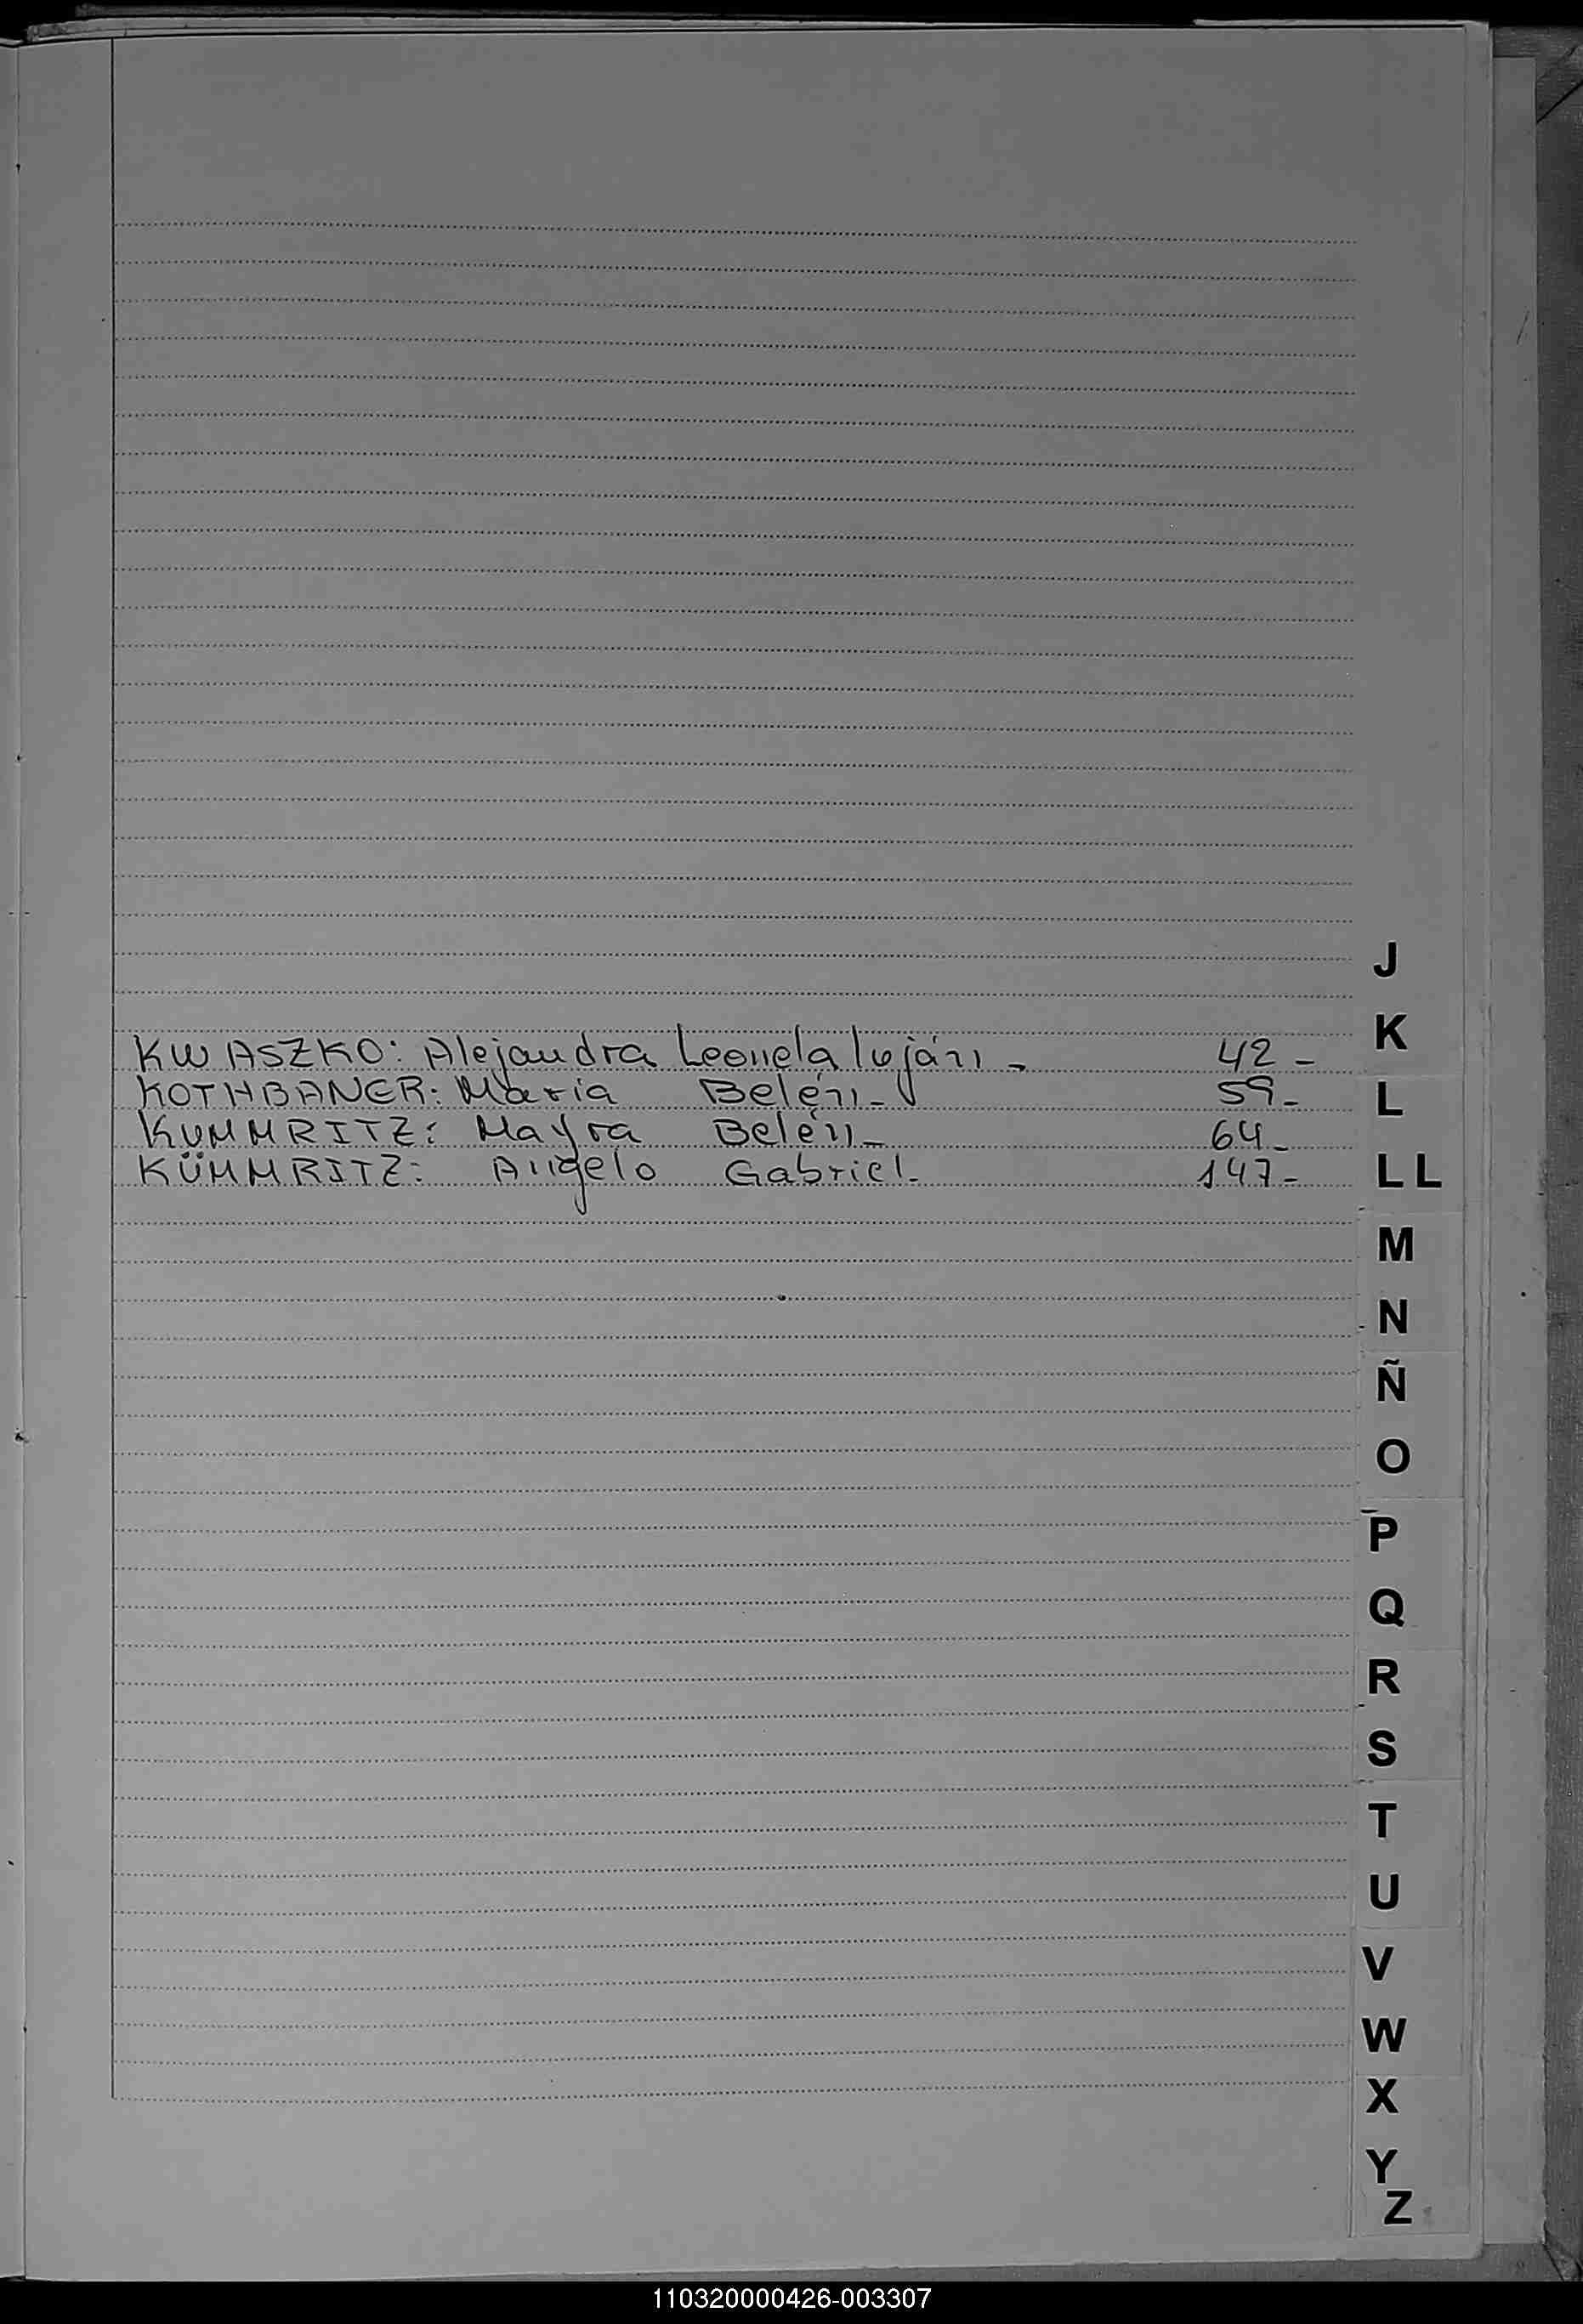 J
K
KWASZKO: Alejandra Leonela luján - 42 -
KOTHBANER: María Belén - 59 -
L
KUMMRITZ: Mayra Belén - 64 -
KÜMMRITZ: Angelo Gabriel - 147 -
LL
M
N
Ñ
O
P
Q
R
S
T
U
V
W
X
Y
Z
110320000426-003307